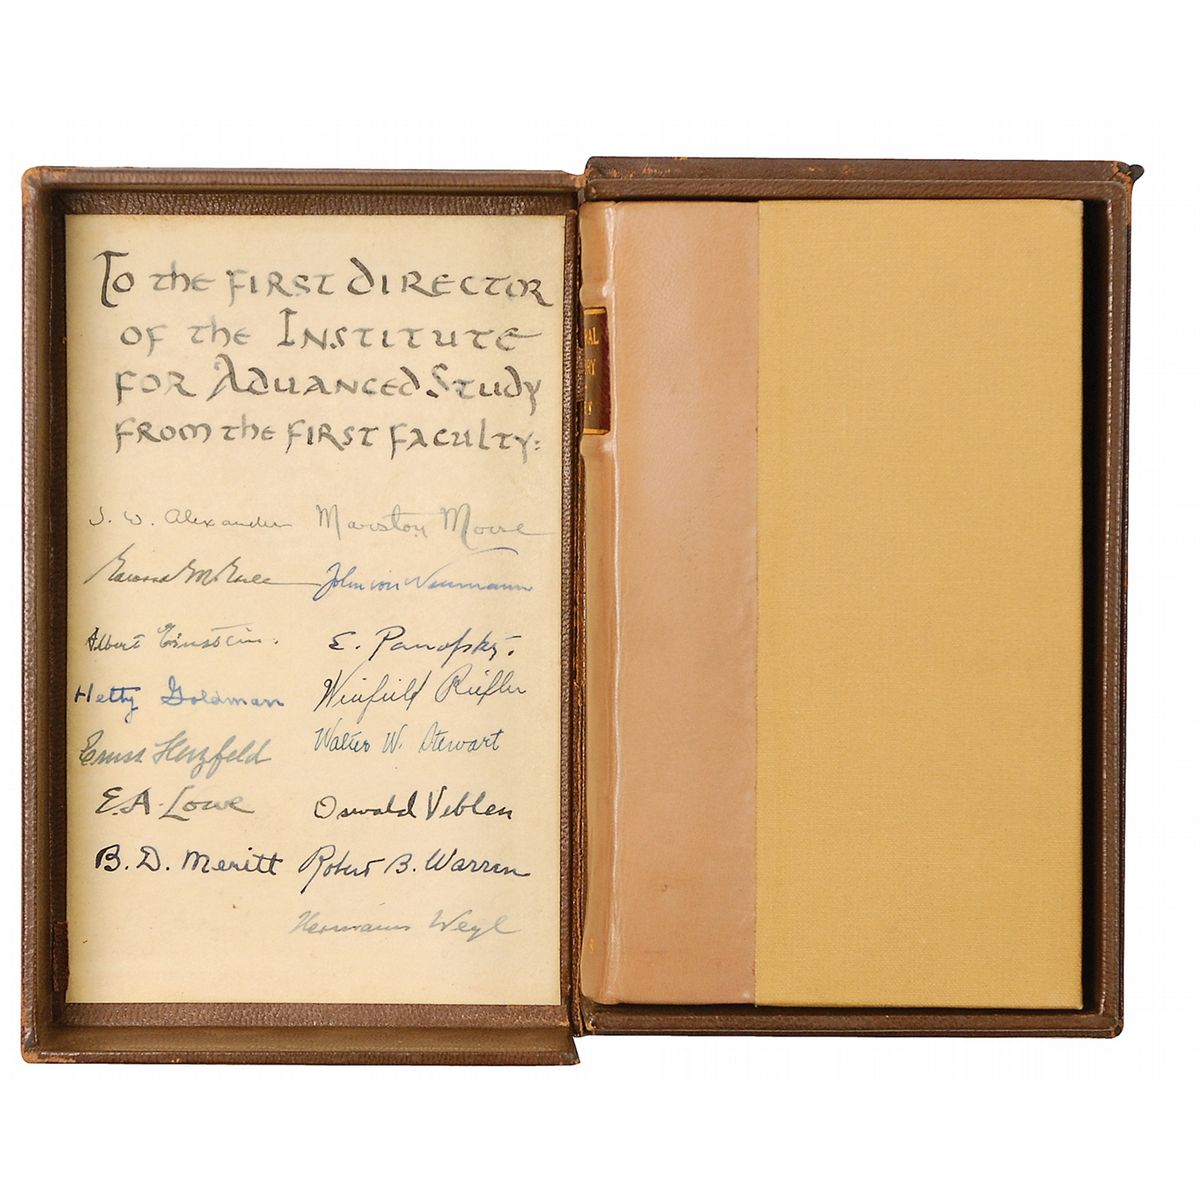 To the first Director
of the Institute
for Advanced Study
from the first faculty:
J. W. Alexander
Edward M. Earle
Albert Einstein.
Hetty Goldman
Ernst Herzfeld
E. A. Lowe
B. D. Meritt
Marston Morse
John von Neumann
E. Panofsky.
Winfield Riefler
Walter W. Stewart
Oswald Veblen
Robert B. Warren
Hermann Weyl